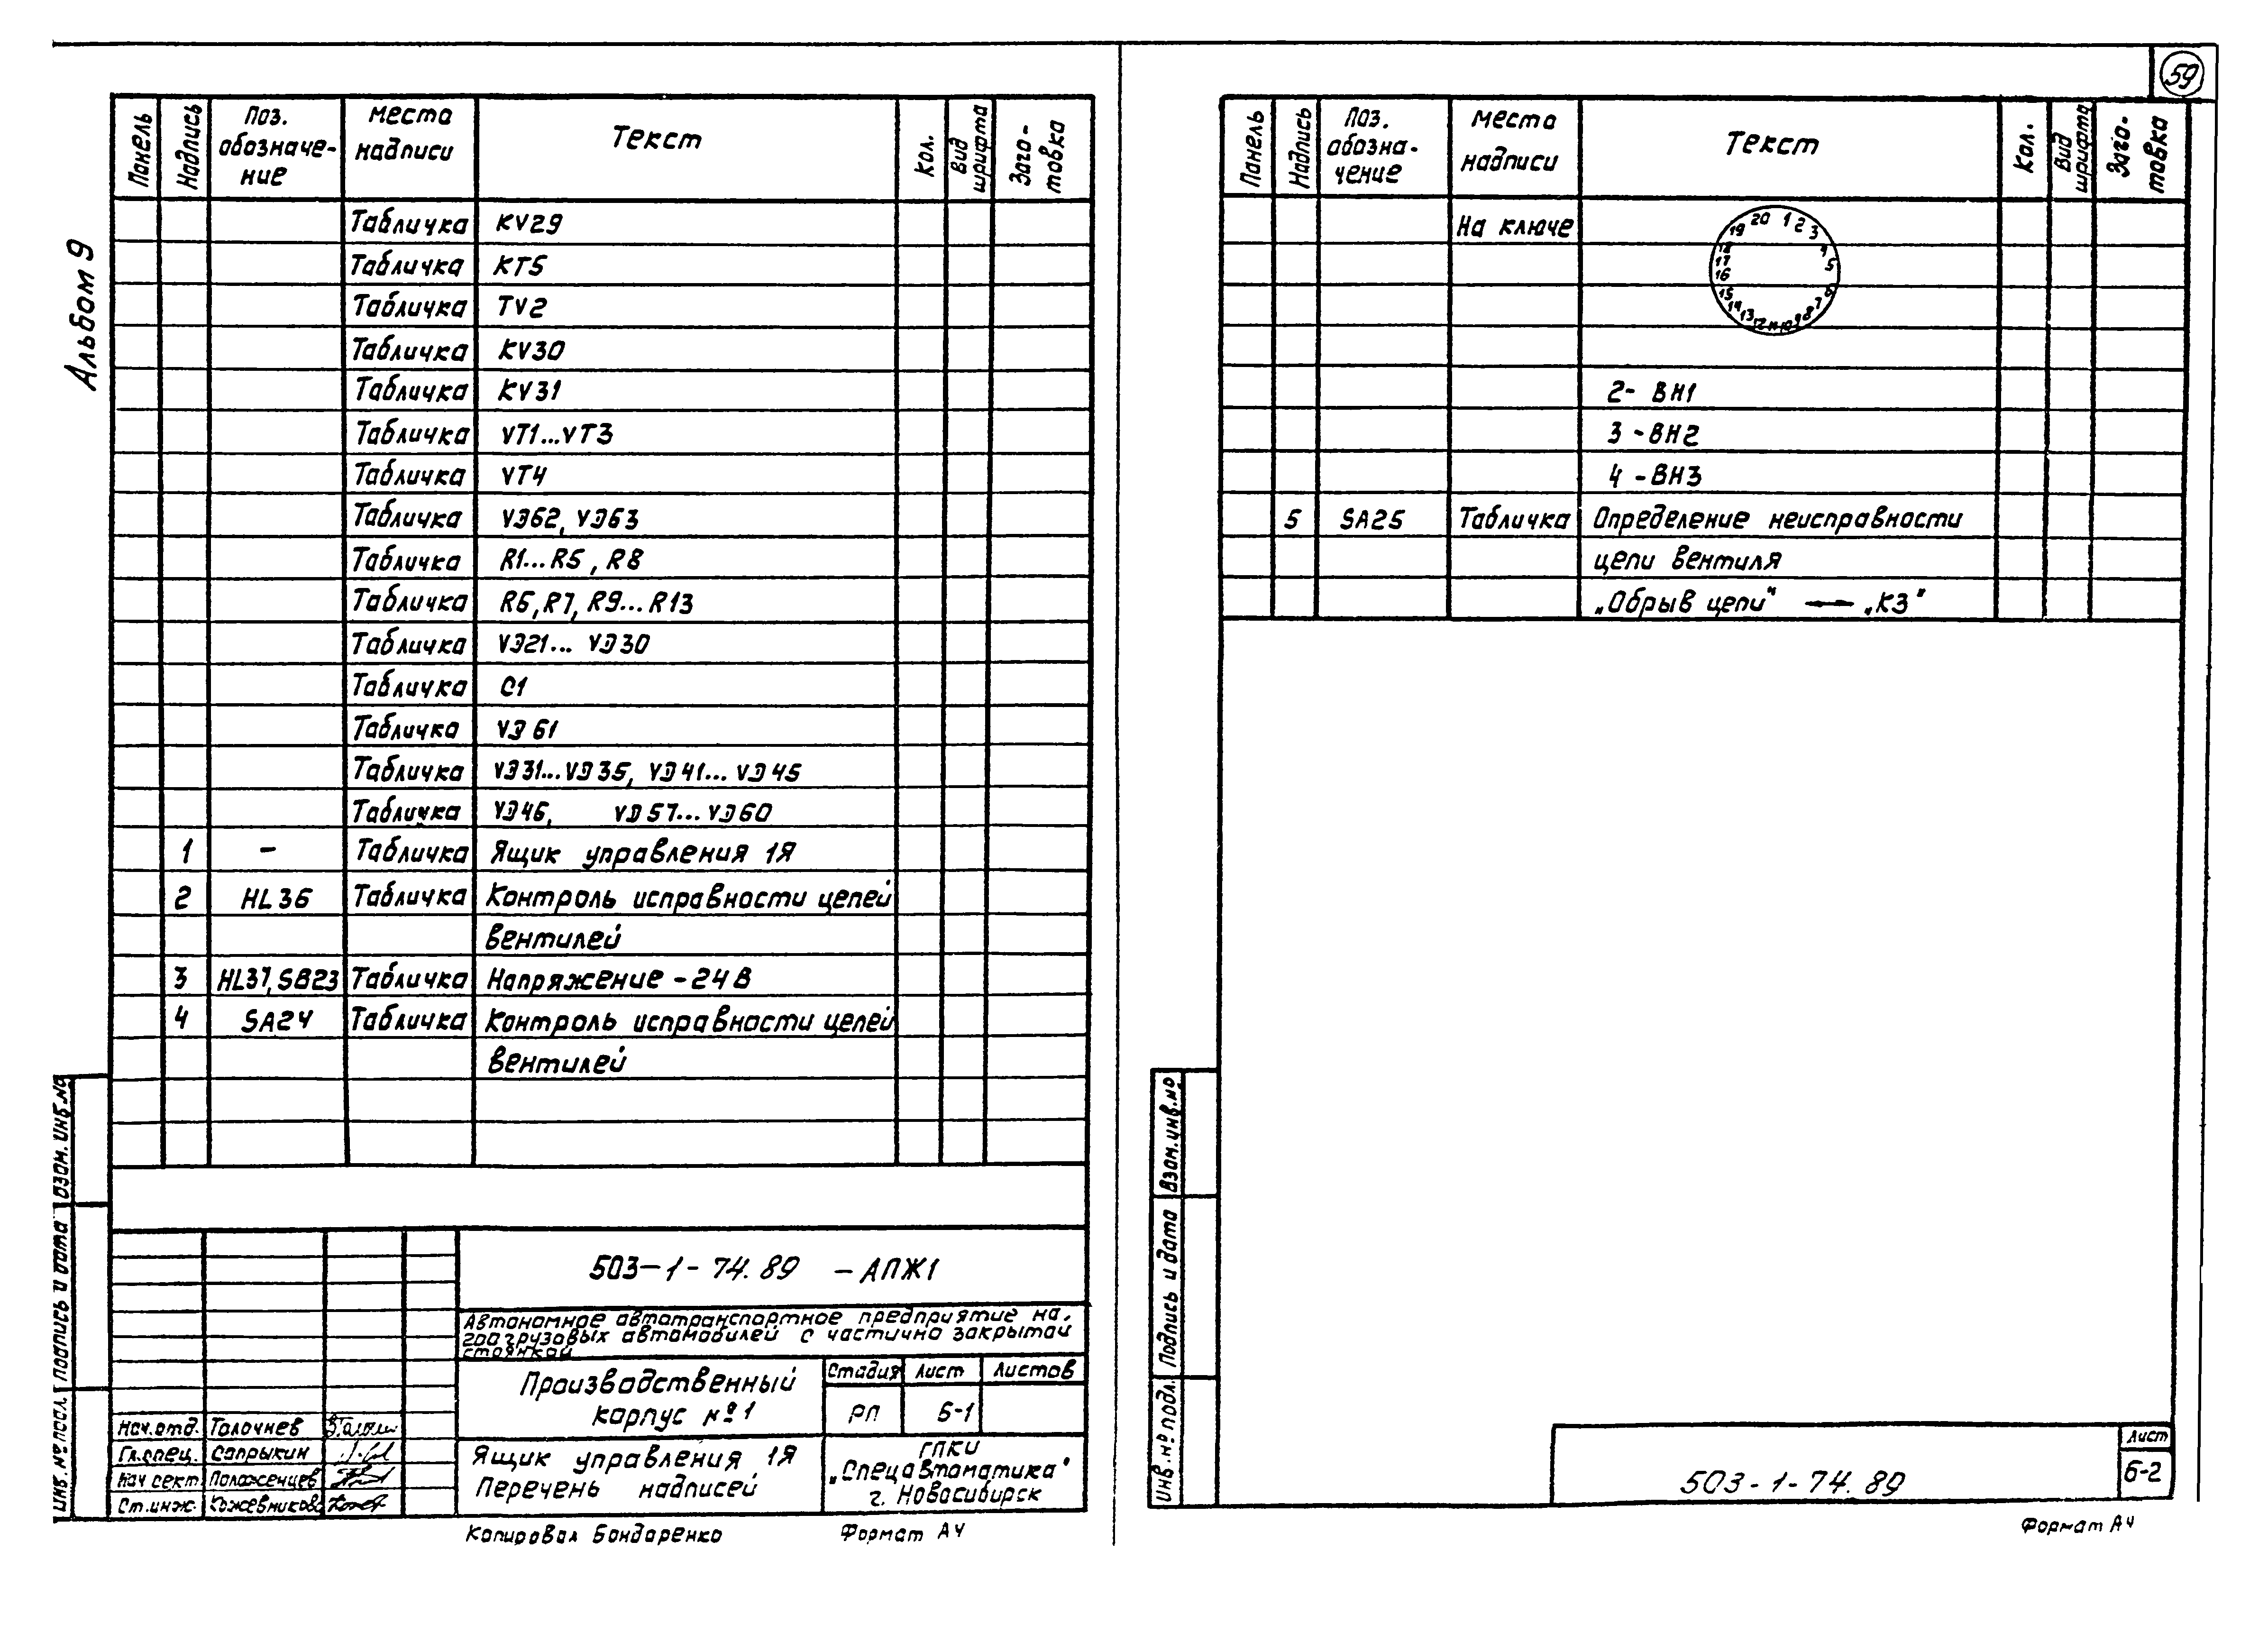 59
Альбом 9
Панель
Надпись
Поз. обозначе-ние
Места надписи
Текст
Кол.
Вид шрифта
Заго-товка
Табличка KV29
Табличка KT5
Табличка TV2
Табличка KV30
Табличка KV31
Табличка VT1...VT3
Табличка VT4
Табличка VЭ62, VЭ63
Табличка R1...R5, R8
Табличка R6, R7, R9...R13
Табличка VЭ21... VЭ30
Табличка C1
Табличка VЭ61
Табличка VЭ31...VЭ35, VЭ41... VЭ45
Табличка VЭ46, VЭ57...VЭ60
1 - Табличка Ящик управления 1Я
2 HL36 Табличка Контроль исправности цепей
вентилей
3 HL37, SB23 Табличка Напряжение -24В
4 SA24 Табличка Контроль исправности цепей
вентилей
Взам. инв. №
Подпись и дата
Инв. № подл.
503-1-74.89 -АПЖ1
Автономное автотранспортное предприятие на
200 грузовых автомобилей с частично закрытой
стоянкой
Производственный
корпус №1
Стадия Лист Листов
РП Б-1
Нач.отд. Толочнев
Гл.спец. Сапрыкин
Нач сект. Положенцев
Ст.инж. Кожевникова
Ящик управления 1Я
Перечень надписей
ГПКИ
„Спецавтоматика"
г. Новосибирск
Копировал Бондаренко Формат А4
Панель
Надпись
Поз. обозна-чение
Места надписи
Текст
Кол.
Вид шрифта
Заго-товка
На ключе
1 2 3 4 5 6 7 8 9 10 11 12 13 14 15 16 17 18 19 20
2- ВН1
3 -ВН2
4 -ВН3
5 SA25 Табличка Определение неисправности
цепи вентиля
„Обрыв цепи" — „КЗ"
Взам. инв. №
Подпись и дата
Инв. № подл.
503-1-74.89
Лист
Б-2
Формат А4